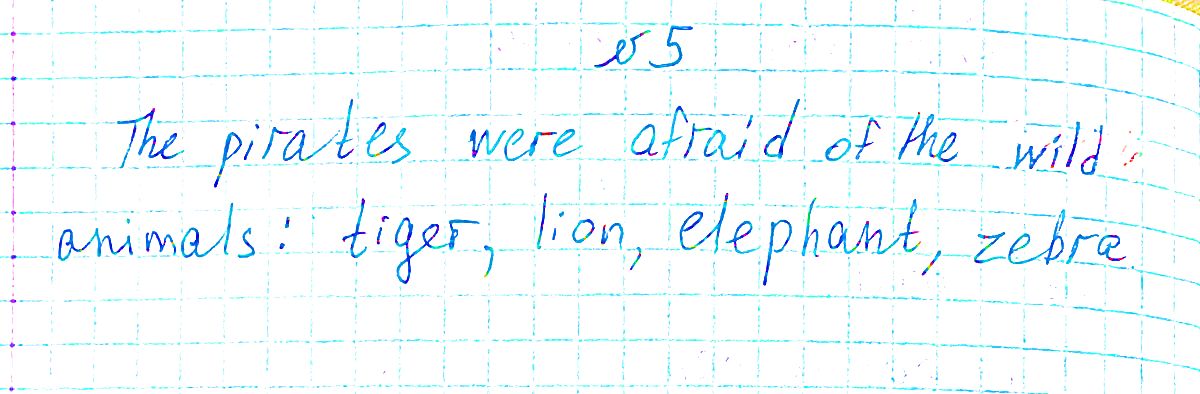 №5
The pirates were afraid of the wild
animals: tiger, lion, elephant, zebra.